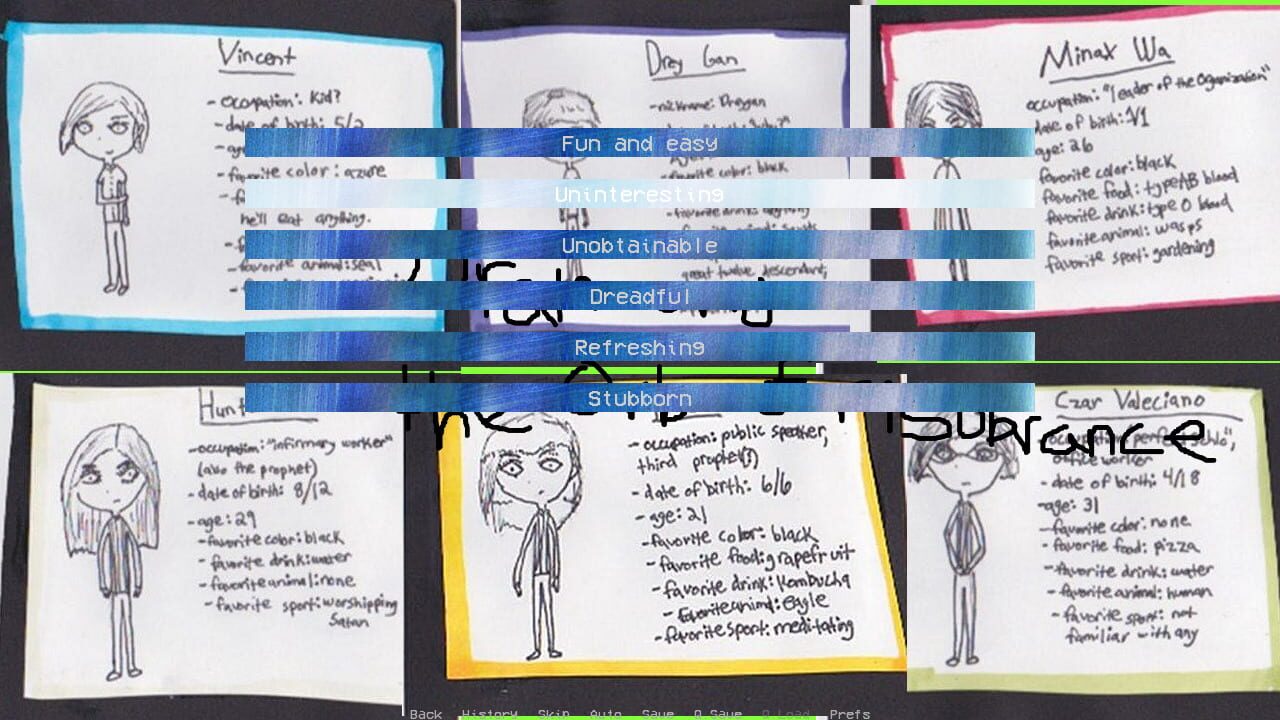 Vincent
- occupation: Kid?
- date of birth: 5/2
- favorite color: azure
he'll eat anything.
- favorite animal: seal
Drey Gan
- nickname: Dreygan
- favorite color: black
great twelve descendant,
Minax Wa
occupation: "leader of the Organization"
date of birth: 1/1
age: 26
favorite color: black
favorite food: type AB blood
favorite drink: type O blood
favorite animal: wasps
favorite sport: gardening
Fun and easy
Uninteresting
Unobtainable
Dreadful
Refreshing
Stubborn
the
- occupation: "infirmary worker"
(aka the prophet)
- date of birth: 8/12
- age: 29
- favorite color: black
- favorite drink: water
- favorite animal: none
- favorite sport: worshipping
Satan
- occupation: public speaker,
third prophet(?)
- date of birth: 6/6
- age: 21
- favorite color: black
- favorite food: grapefruit
- favorite drink: kombucha
- favorite animal: eagle
- favorite sport: meditating
Czar Valeciano
office worker
- date of birth: 4/18
- age: 31
- favorite color: none
- favorite food: pizza
- favorite drink: water
- favorite animal: human
- favorite sport: not
familiar with any
Back History Skip Auto Save Q.Save Q.Load Prefs